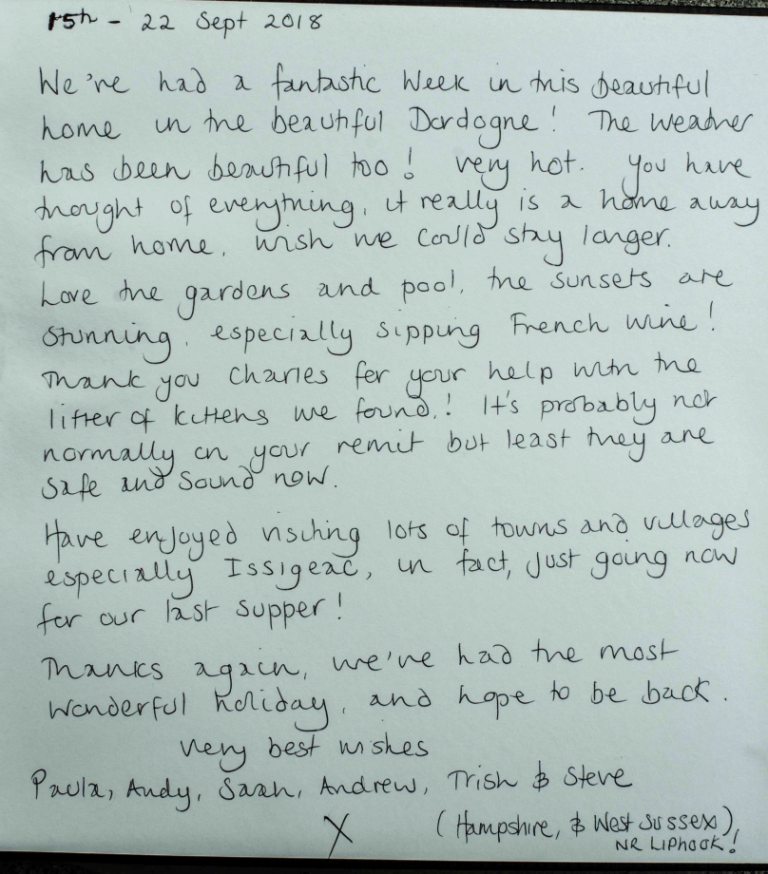 15th - 22 Sept 2018
We've had a fantastic week in this beautiful
home in the beautiful Dordogne! The weather
has been beautiful too! Very hot. You have
thought of everything, it really is a home away
from home. Wish we could stay longer.
Love the gardens and pool, the sunsets are
stunning, especially sipping French wine!
Thank you Charles for your help with the
litter of kittens we found.! It's probably not
normally on your remit but least they are
safe and sound now.
Have enjoyed visiting lots of towns and villages
especially Issigeac, in fact, just going now
for our last supper!
Thanks again, we've had the most
wonderful holiday, and hope to be back.
Very best wishes
Paula, Andy, Sarah, Andrew, Trish & Steve
X (Hampshire, & West Sussex),
NR LIPHOOK!